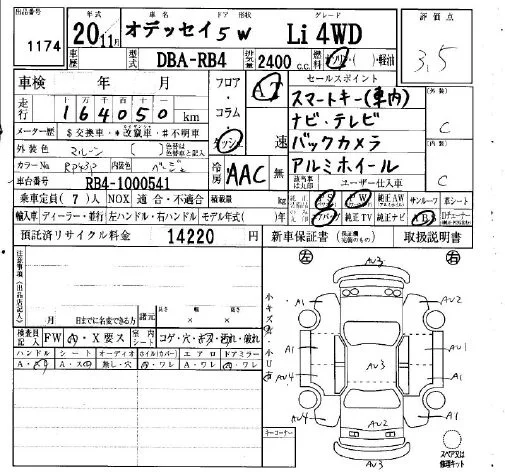 出品番号 年式 車名 ドア 形状 グレード 評価点
1174 20年11月 オデッセイ 5W Li 4WD 3.5
車歴 型式 DBA-RB4 排気量 2400 c.c. 燃料 ガソリン・軽油
車検 年 月 フロア・コラム・ダッシュ AT セールスポイント
走行 十万 164050 km
スマートキー(車内)
ナビ・テレビ
バックカメラ
アルミホイール
外装 C
内装 C
メーター歴 $交換車・*改竄車・#不明車 速
外装色 マルーン
カラーNo. RP43P 内装色 ベージュ
冷房 AAC 無 ユーザー仕入車
車台番号 RB4-1000541
乗車定員(7)人 NOX 適合・不適合 積載量 kg PS PW 純正AW サンルーフ 革シート
輸入車 ディーラー・並行 左ハンドル・右ハンドル モデル年式( )年 エアバッグ 純正TV 純正ナビ ABS
預託済リサイクル料金 14220 円 新車保証書 取扱説明書
注意事項(出品店記入)
左 右
月 日までに名変できる方 諸元 長さ 幅 高さ
× ×
検査員記入 FW A・X要ス 室内シート コゲ・穴・キズ・汚れ・破れ
ハンドル シート オーディオ ホイル(カバー) エアロ ドアミラー
A・スリ A・スレ 無し・穴 A・ワレ A・ワレ A・ワレ
小キズ 小U有
キーコーナー
AU3
A1 AU2
A1 AU1
AU3
AU4 A1
AU4 A1
AU2
AU3
スペア又は修理キット